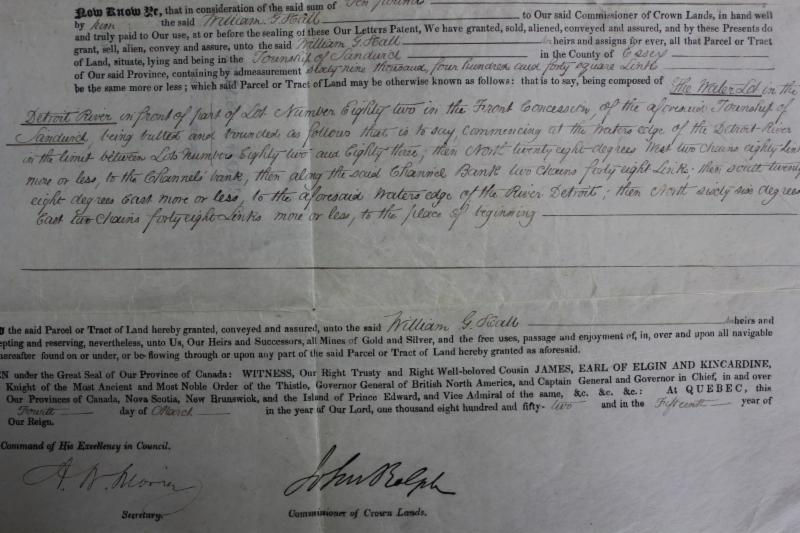 Now Know Ye, that in consideration of the said sum of Ten pounds
by him the said William G. Hall to Our said Commissioner of Crown Lands, in hand well
and truly paid to Our use, at or before the sealing of these Our Letters Patent, We have granted, sold, aliened, conveyed and assured, and by these Presents do
grant, sell, alien, convey and assure, unto the said William G. Hall heirs and assigns for ever, all that Parcel or Tract
of Land, situate, lying and being in the Township of Sandwich in the County of Essex
of Our said Province, containing by admeasurement sixty nine thousand, four hundred and forty square Links
be the same more or less; which said Parcel or Tract of Land may be otherwise known as follows: that is to say, being composed of The Water Lot in the
Detroit River in front of part of Lot Number Eighty two in the Front Concession, of the aforesaid Township of
Sandwich, being butted and bounded as follows that is to say, commencing at the Waters edge of the Detroit River
in the limit between Lots numbers Eighty two and Eighty three; then North twenty eight degrees West two chains eighty Links
more or less, to the Channels' bank, then along the said Channel Bank two chains forty eight Links; then south twenty
eight degrees East more or less, to the aforesaid Waters edge of the River Detroit; then North sixty six degrees
East two chains forty eight Links more or less, to the place of beginning
the said Parcel or Tract of Land hereby granted, conveyed and assured, unto the said William G. Hall heirs and
epting and reserving, nevertheless, unto Us, Our Heirs and Successors, all Mines of Gold and Silver, and the free uses, passage and enjoyment of, in, over and upon all navigable
hereafter found on or under, or be flowing through or upon any part of the said Parcel or Tract of Land hereby granted as aforesaid.
EN under the Great Seal of Our Province of Canada: WITNESS, Our Right Trusty and Right Well-beloved Cousin JAMES, EARL OF ELGIN AND KINCARDINE,
Knight of the Most Ancient and Most Noble Order of the Thistle, Governor General of British North America, and Captain General and Governor in Chief, in and over
Our Provinces of Canada, Nova Scotia, New Brunswick, and the Island of Prince Edward, and Vice Admiral of the same, &c. &c. &c.: At QUEBEC, this
Fourth day of March in the year of Our Lord, one thousand eight hundred and fifty- two and in the Fifteenth year of
Our Reign.
Command of His Excellency in Council.
A. N. Morin John Rolph
Secretary. Commissioner of Crown Lands.